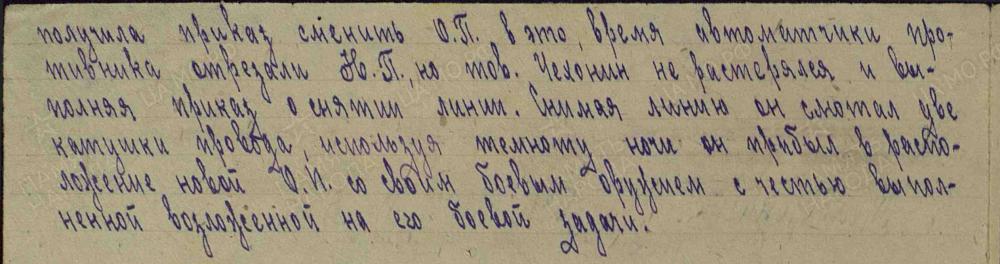 получила приказ сменить О.П. в это, время автоматчики про-
тивника отрезали Н.П., но тов. Чехонин не растерялся и вы-
полняя приказ о снятии линии. Снимая линию он смотал две
катушки провода, используя темноту ночи он прибыл в распо-
ложение новой О.П. со своим боевым оружием с честью выпол-
ненной возложенной на его боевой задачи.